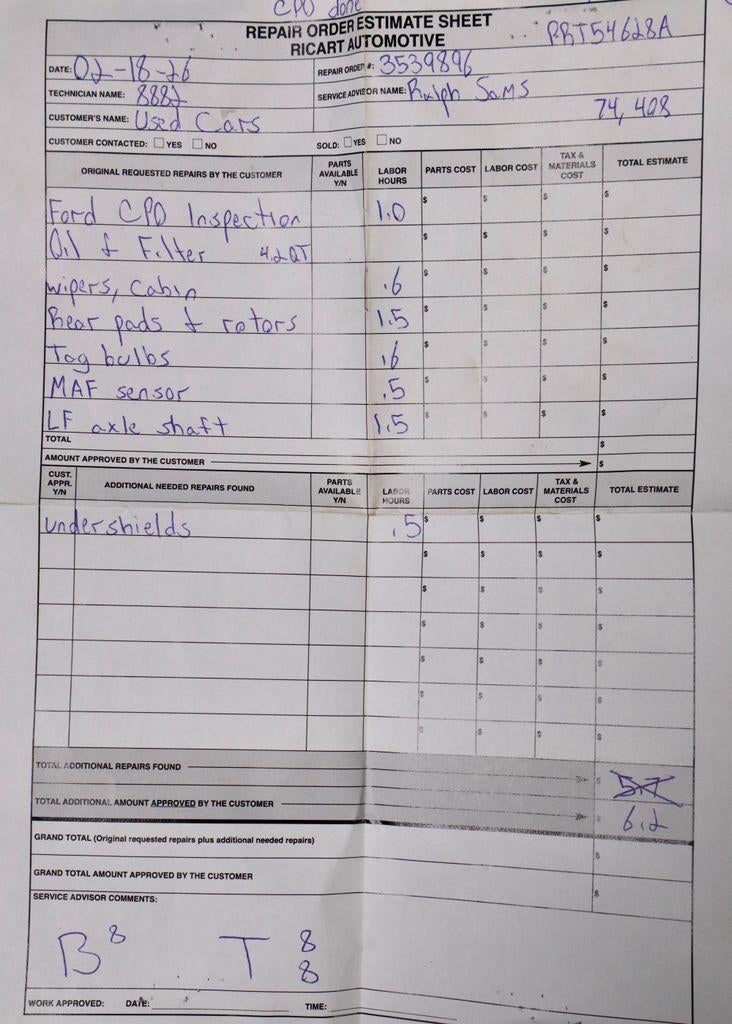 CPO done
REPAIR ORDER ESTIMATE SHEET
RICART AUTOMOTIVE
PRT54628A
DATE: 02-18-26
REPAIR ORDER #: 3539896
TECHNICIAN NAME: 8882
SERVICE ADVISOR NAME: Ralph Sams
CUSTOMER'S NAME: Used Cars
74,408
CUSTOMER CONTACTED: YES NO SOLD: YES NO
ORIGINAL REQUESTED REPAIRS BY THE CUSTOMER PARTS AVAILABLE Y/N LABOR HOURS PARTS COST LABOR COST TAX & MATERIALS COST TOTAL ESTIMATE
Ford CPO Inspection 1.0 $ $ $ $
Oil & Filter 4.2QT $ $ $ $
wipers, cabin .6 $ $ $ $
Rear pads & rotors 1.5 $ $ $ $
Tag bulbs .6 $ $ $ $
MAF sensor .5 $ $ $ $
LF axle shaft 1.5 $ $ $ $
TOTAL $
AMOUNT APPROVED BY THE CUSTOMER $
CUST. APPR. Y/N ADDITIONAL NEEDED REPAIRS FOUND PARTS AVAILABLE Y/N LABOR HOURS PARTS COST LABOR COST TAX & MATERIALS COST TOTAL ESTIMATE
undershields .5 $ $ $ $
$ $ $ $
$ $ $ $
$ $ $ $
$ $ $ $
$ $ $ $
$ $ $ $
TOTAL ADDITIONAL REPAIRS FOUND $ 5.7
TOTAL ADDITIONAL AMOUNT APPROVED BY THE CUSTOMER $ 6.2
GRAND TOTAL (Original requested repairs plus additional needed repairs) $
GRAND TOTAL AMOUNT APPROVED BY THE CUSTOMER $
SERVICE ADVISOR COMMENTS:
B 8 T 8
8
WORK APPROVED: DATE: TIME: